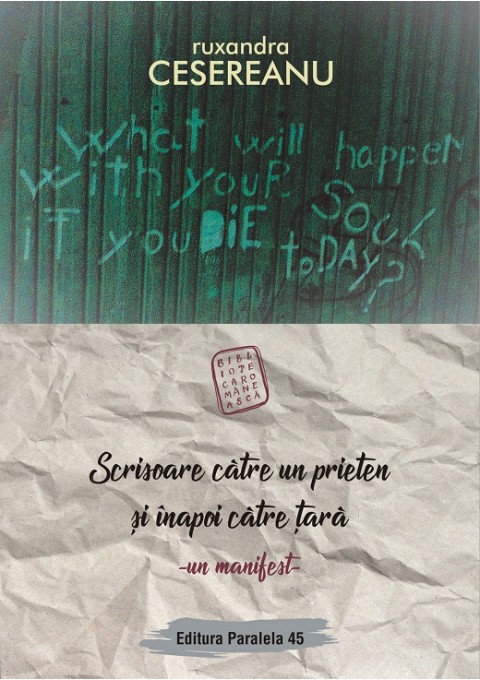 ruxandra
CESEREANU
What will happen
with youR SOUL
if you DIE toDAY?
BIBL
IOTE
CARO
MÂNE
ASCĂ
Scrisoare către un prieten
și înapoi către țară
-un manifest-
Editura Paralela 45